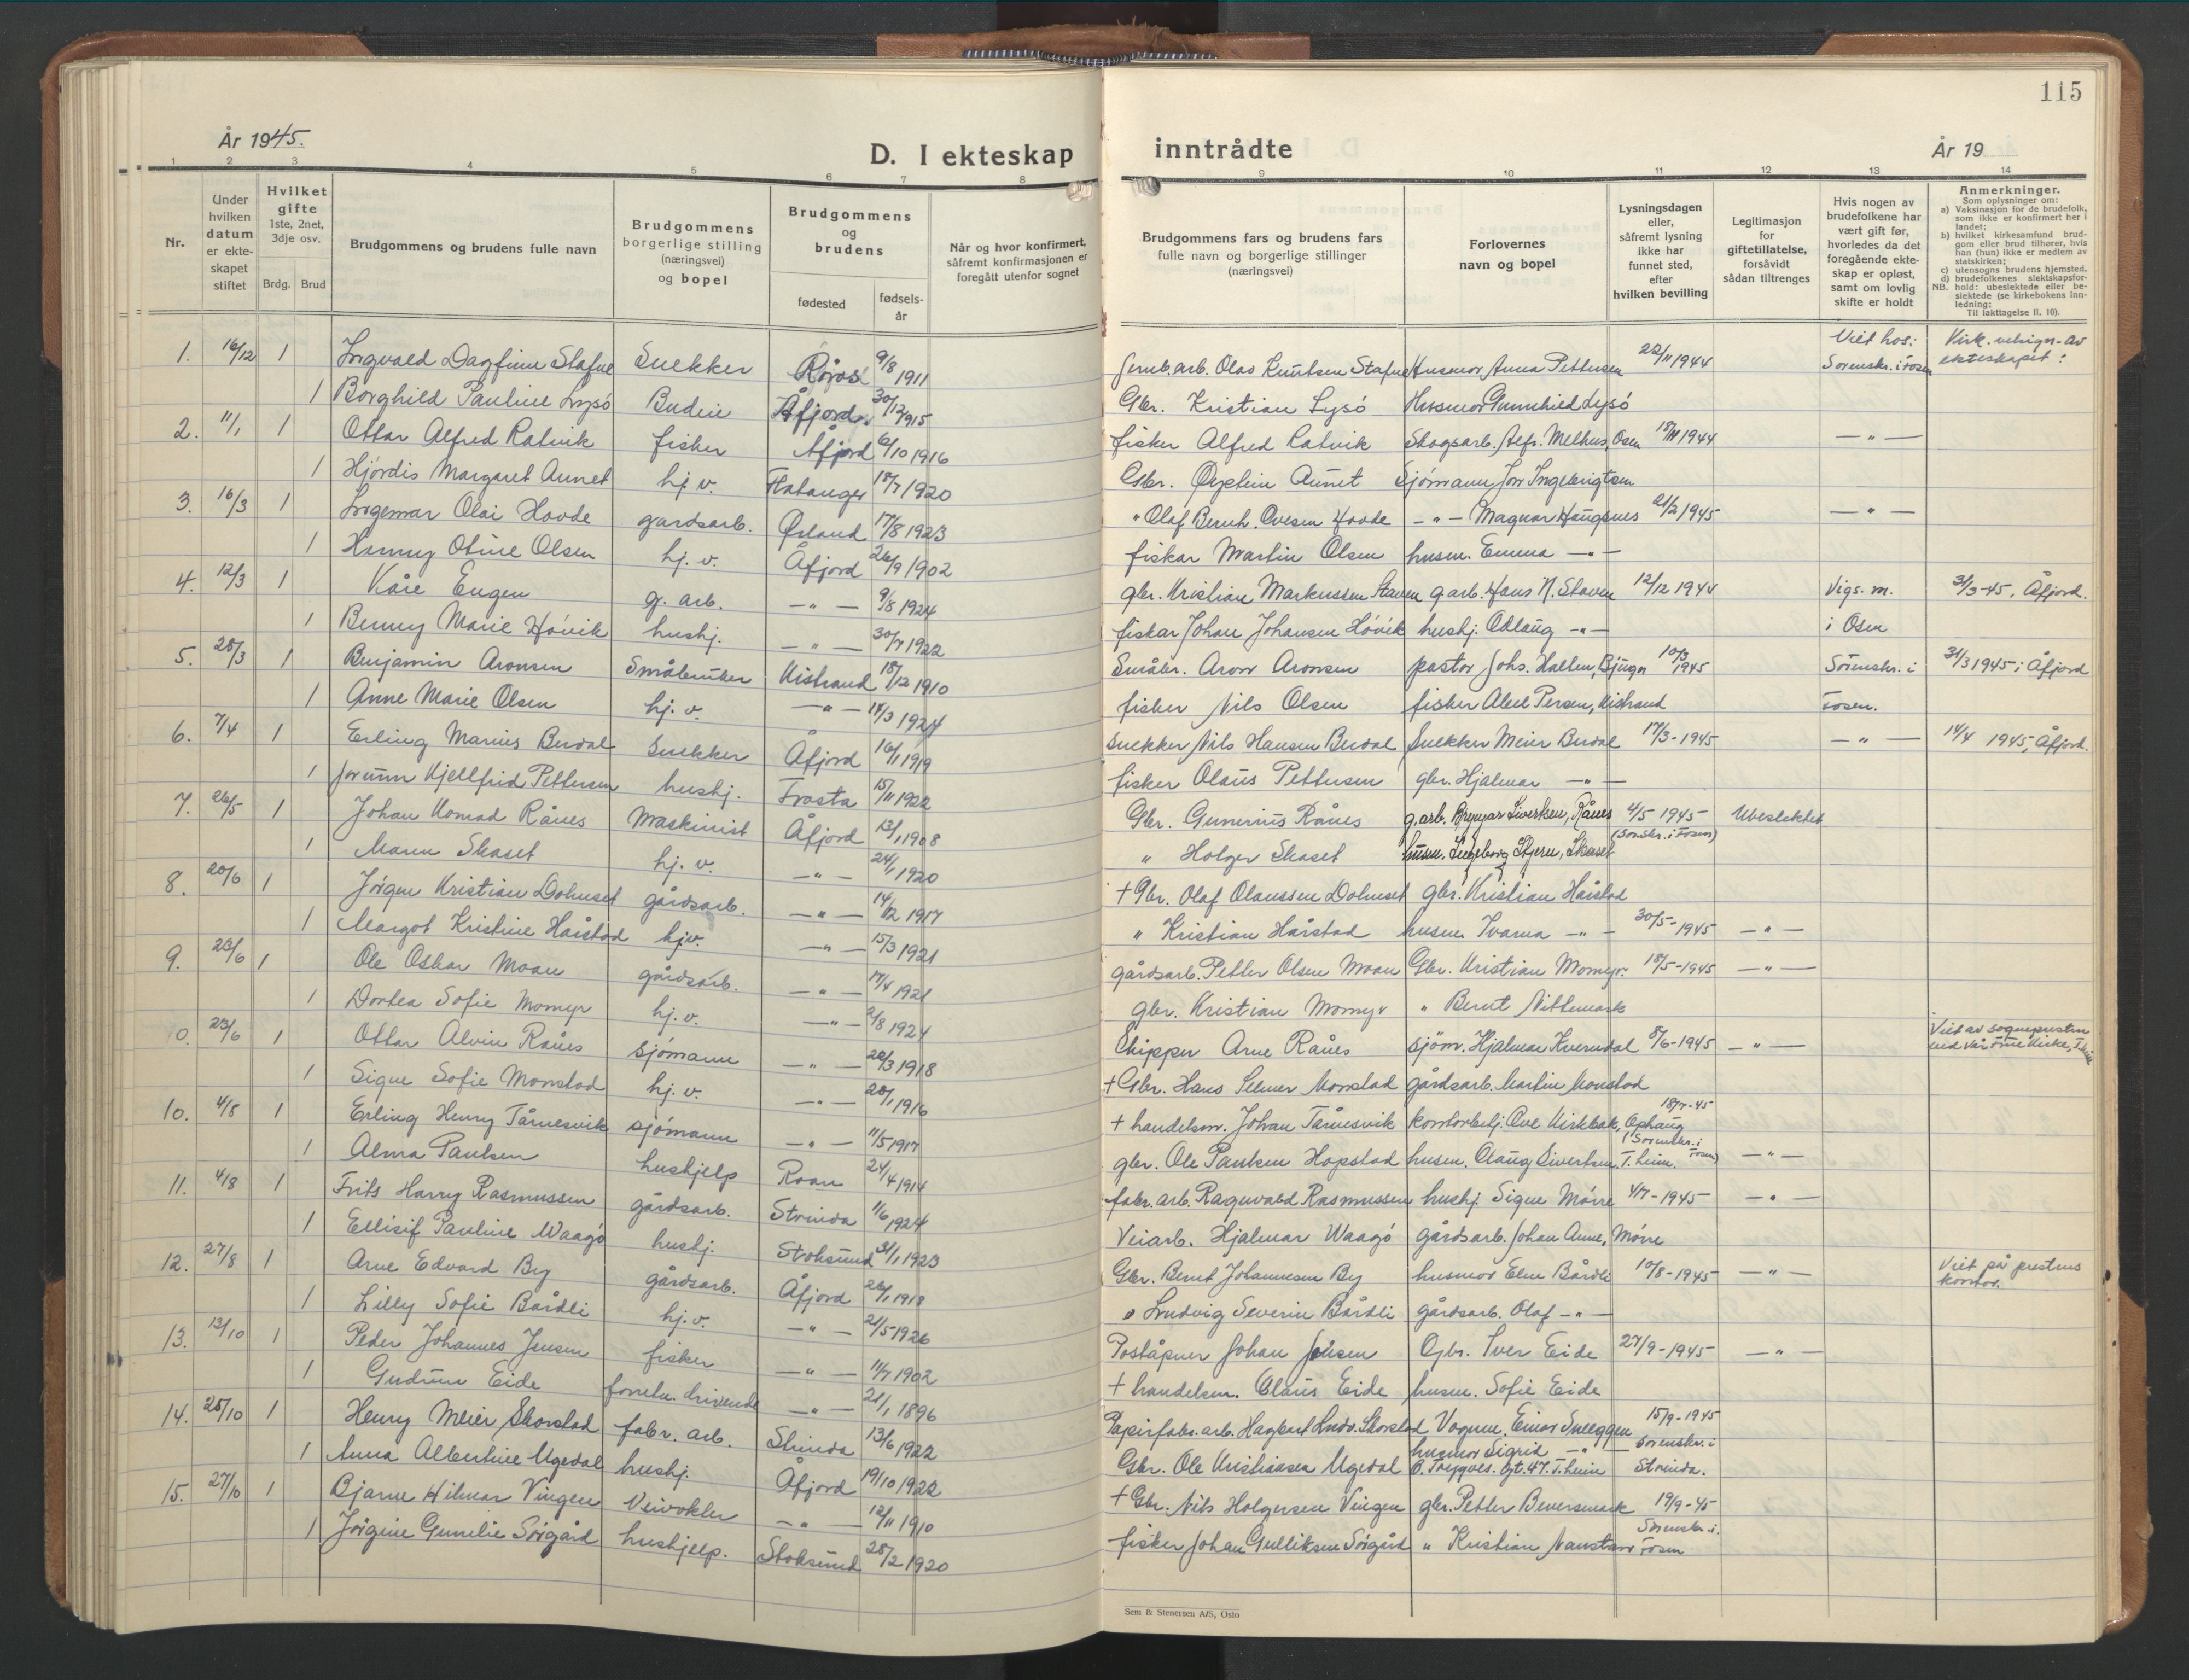 115
År 1945.
D. I ekteskap
inntrådte
År 19
1 2 3 4 5 6 7 8 9 10 11 12 13 14
Nr.
Under hvilken datum er ekteskapet stiftet
Hvilket gifte 1ste, 2net, 3dje osv.
Brdg. Brud
Brudgommens og brudens fulle navn
Brudgommens borgerlige stilling (næringsvei) og bopel
Brudgommens og brudens
fødested
fødselsår
Når og hvor konfirmert, såfremt konfirmasjonen er foregått utenfor sognet
Brudgommens fars og brudens fars fulle navn og borgerlige stillinger (næringsvei)
Forlovernes navn og bopel
Lysningsdagen eller, såfremt lysning ikke har funnet sted, efter hvilken bevilling
Legitimasjon for giftetillatelse, forsåvidt sådan tiltrenges
Hvis nogen av brudefolkene har vært gift før, hvorledes da det foregående ekteskap er opløst, samt om lovlig skifte er holdt
Anmerkninger.
Som oplysninger om:
a) Vaksinasjon for de brudefolk, som ikke er konfirmert her i landet;
b) hvilket kirkesamfund brudgom eller brud tilhører, hvis han (hun) ikke er medlem av statskirken;
c) utensogns brudens hjemsted.
d) brudefolkenes slektskapsforhold: ubeslektede eller beslektede (se kirkebokens innledning;
NB.
Til iakttagelse II. 10).
1. 16/12 1 Ingvald Dagfinn Stafne Snekker Røros 9/8 1911 Jernb.arb. Olav Knutsen Stafne Husmor Anna Pettersen 22/11 1944 Viet hos: Sorenskr. i Fosen Kirk. velsign. av ekteskapet:
1 Borghild Pauline Lysö Budeie Åfjord. 30/12 1915 Gbr. Kristian Lysö Husmor Gunnhild Lysö
2. 11/1 1 Ottar Alfred Ratvik fisker Åfjord 6/10 1916 fisker Alfred Ratvik Skogsarb. Alfr. Melhus, Osen 18/11 1944 — " —
1 Hjördis Margaret Aunet hj. v. Flatanger 18/7 1920 Gbr. Øystein Aunet Sjömann Jon Ingebrigtsen
3. 16/3 1 Ingemar Olai Hovde gardsarb. Ørland 17/8 1923 " Olaf Bernh. Ovesen Hovde — " — Magnar Haugsnes 21/2 1945 — " —
1 Hanny Otine Olsen hj. v. Åfjord 26/9 1902 fiskar Martin Olsen husm. Emma — " —
4. 12/3 1 Kåre Eugen g. arb. — " — 9/8 1924 gbr. Kristian Markussen Staven g.arb. Hans N. Staven 12/12 1944 Vigs. m. i Osen 31/3-45, Åfjord.
1 Benny Marie Hövik hushj. — " — 30/7 1922 fiskar Johan Johansen Hövik hushj. Odlaug — " —
5. 28/3 1 Benjamin Aronsen Småbruker Kistrand 18/12 1910 Småbr. Aron Aronsen pastor Johs. Hallem, Bjugn 10/3 1945 Sörenskr. i Fosen. 31/3 1945 i Åfjord
1 Anne Marie Olsen hj. v. — " — 14/3 1924 fisker Nils Olsen fisker Aksel Persen, Kistrand
6. 7/4 1 Erling Marius Burdal Snekker Åfjord 16/1 1919 Snekker Nils Hansen Burdal Snekker Meier Burdal 17/3-1945 — " — 14/4 1945, Åfjord.
1 Jorunn Kjellfrid Pettersen hushj. Frosta 15/11 1922 fisker Olaus Pettersen gbr. Hjalmar — " —
7. 26/5 1 Johan Konrad Rånes Maskinist Åfjord 13/1 1908 Gbr. Gunerius Rånes g.arb. Brynjar Sivertsen, Rånes 4/5-1945 (Sorskr. i Fosen) Ubeslektet
1 Maren Skaset hj. v. — " — 24/1 1920 " Holger Skaset husm. Ingeborg Stjern, Skaset
8. 20/6 1 Jörgen Kristian Dolmset gårdsarb. — " — 14/12 1917 + Gbr. Olaf Olaussen Dolmset gbr. Kristian Hårstad
1 Margot Kristine Hårstad hjv. — " — 15/3 1921 " Kristian Hårstad husm. Ivarna — " — 30/5-1945 — " —
9. 23/6 1 Ole Oskar Moan gårdsarb. — " — 17/4 1921 gårdsarb. Petter Olsen Moan Gbr. Kristian Momyr. 18/5-1945 — " —
1 Dortea Sofie Momyr hj. v. — " — 2/8 1924 gbr. Kristian Momyr " Bernt Nittemark
0. 23/6 1 Ottar Alvin Rånes sjömann — " — 22/3 1918 Skipper Arne Rånes sjöm. Hjalmar Kverndal 8/6-1945 — " — Viet av sognepresten ved Vår Frue Kirke,
1 Signe Sofie Monstad hj. v. — " — 28/1 1916 + Gbr. Hans Selmer Monstad gårdsarb. Martin Monstad
10. 4/8 1 Erling Henry Tårnesvik sjömann — " — 11/5 1917 + handelsm. Johan Tårnesvik kontorbetj. Ove Kirkbak, Ophaug 18/7-45 (Sorenskr. i Fosen) — " —
1 Alma Paulsen hushjelp Roan 24/4 1914 gbr. Ole Paulsen Hopstad husm. Olaug Sivertsen, T.heim.
11. 4/8 1 Frits Harry Rasmussen gårdsarb. Strinda 11/6 1924 fabr. arb. Ragnvald Rasmussen hushj. Signe Mörre 4/7-1945 — " —
1 Ellisif Pauline Waagö hushj. Stoksund 31/1 1923 Veiarb. Hjalmar Waagö gårdsarb. Johan Aune, Mörre
12. 27/8 1 Arne Edvard By gårdsarb. Åfjord 26/1 1918 Gbr. Bernt Johannesen By husmor Elen Bårdli 10/8-1945 — " — Viet på prestens kontor.
1 Lilly Sofie Bårdli hj. v. — " — 21/5 1926 " Ludvig Severin Bårdli gårdsarb. Olaf — " —
13. 13/10 1 Peder Johannes Jensen fisker — " — 11/7 1902 Poståpner Johan Jensen Gbr. Iver Eide 27/9-1945 — " —
1 Gudrun Eide forretn. drivende — " — 21/1 1896 + handelsm. Olaus Eide husm. Sofie Eide
14. 25/10 1 Henry Meier Skorstad fabr. arb. Strinda 13/6 1922 Papirfabr. arb. Hagbart Ludv. Skorstad Vognm. Einar Sneeggen 15/9-1945 Sorenskr. i Strinda.
1 Anna Albertine Ugedal hushj. Åfjord 19/10 1922 Gbr. Ole Kristiansen Ugedal husmor Sigrid — " — O. Trygves. Gt. 47. T.heim
15. 27/10 1 Bjarne Hilmar Vingen Veivokter — " — 12/11 1910 + Gbr. Nils Holgersen Vingen gbr. Petter Beversmark 19/9-45 Sorenskr. i Fosen
1 Jörgine Gunelie Sörgård hushjelp. Stoksund 28/2 1920 fisker Johan Gulliksen Sörgård " Kristian Nanstad
Sem & Stenersen A/S, Oslo